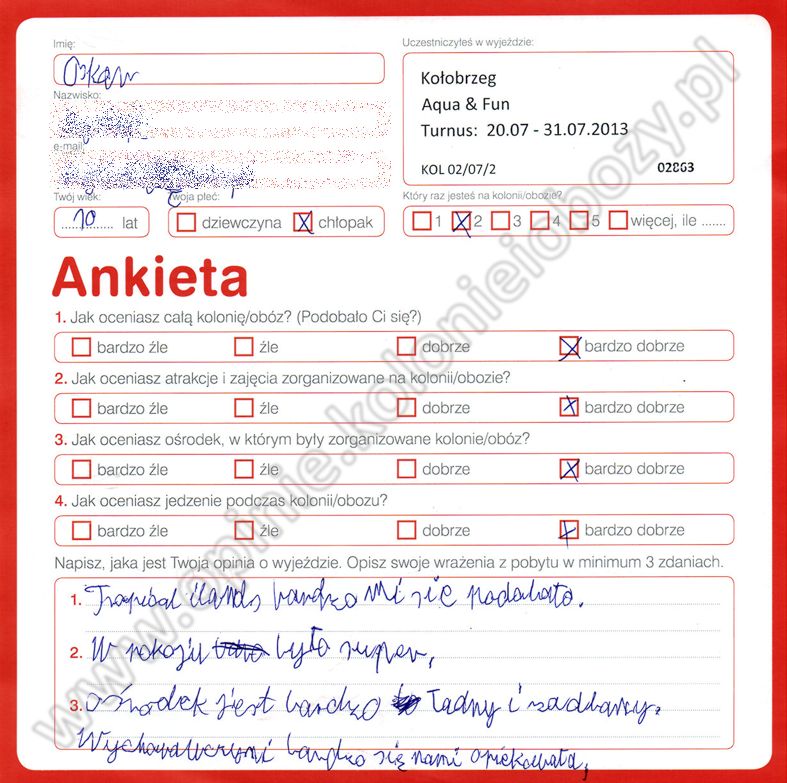 Imię:
Oskar
Uczestniczyłeś w wyjeździe:
Kołobrzeg
Aqua & Fun
Turnus: 20.07 - 31.07.2013
KOL 02/07/2
02863
Nazwisko:
e-mail
Twój wiek:
10 lat
Twoja płeć:
dziewczyna chłopak
Który raz jesteś na kolonii/obozie?
1 2 3 4 5 więcej, ile .......
Ankieta
1. Jak oceniasz całą kolonię/obóz? (Podobało Ci się?)
bardzo źle źle dobrze bardzo dobrze
2. Jak oceniasz atrakcje i zajęcia zorganizowane na kolonii/obozie?
bardzo źle źle dobrze bardzo dobrze
3. Jak oceniasz ośrodek, w którym były zorganizowane kolonie/obóz?
bardzo źle źle dobrze bardzo dobrze
4. Jak oceniasz jedzenie podczas kolonii/obozu?
bardzo źle źle dobrze bardzo dobrze
Napisz, jaka jest Twoja opinia o wyjeździe. Opisz swoje wrażenia z pobytu w minimum 3 zdaniach.
1. bardzo mi sie podobało.
2. W pokoju było super,
3. ośrodek jest bardzo ładny i zadbany.
bardzo się nami
www.opinie.kolonieiobozy.pl